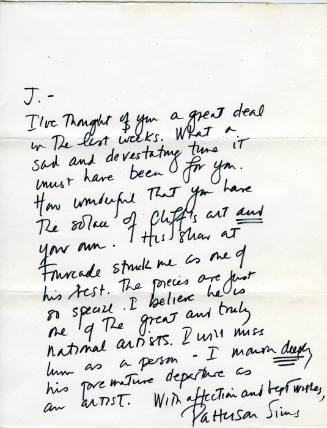 J. -
I've thought of you a great deal
in the last weeks. What a
sad and devestating time it
must have been for you.
How wonderful that you have
the solace of Cliff's art and
your own. His show at
Fourcade struck me as one of
his best. The pieces are just
so special. I believe he is
one of the great and truly
national artists. I will miss
him as a person - I mourn deeply
his premature departure as
an artist. With affection and best wishes,
Patterson Sims